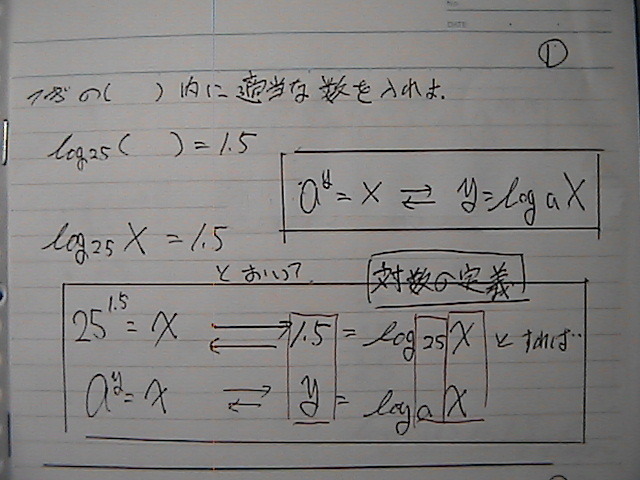 NO.
DATE
①
下記の(　)内に適当な数を入れよ.
log25(　) = 1.5
a^y = x ⇄ y = log a X
log25 X = 1.5
とおいて.
対数の定義.
25^1.5 = x ⇄ 1.5 = log 25 X とすれば‥
a^y = x ⇄ y = log a X